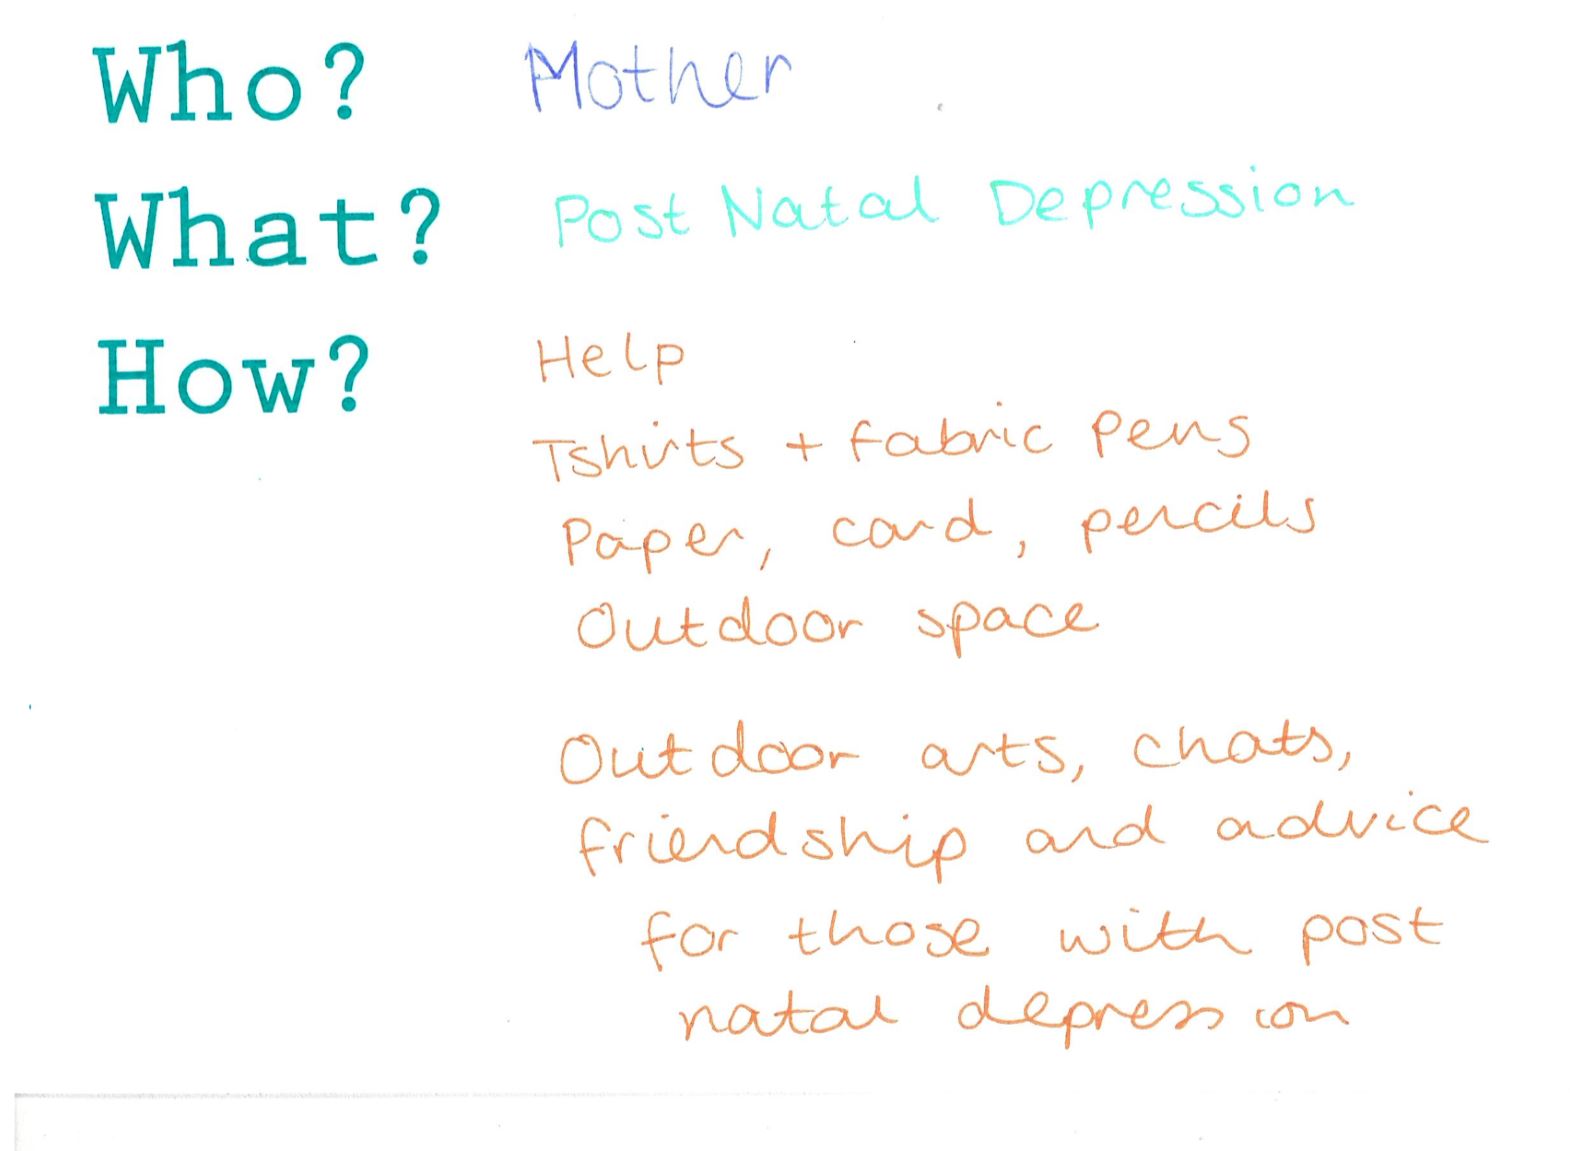 Who? Mother
What? Post Natal Depression
How? Help
Tshirts + fabric pens
Paper, card, pencils
Outdoor space
Outdoor arts, chats,
friendship and advice
for those with post
natal depression